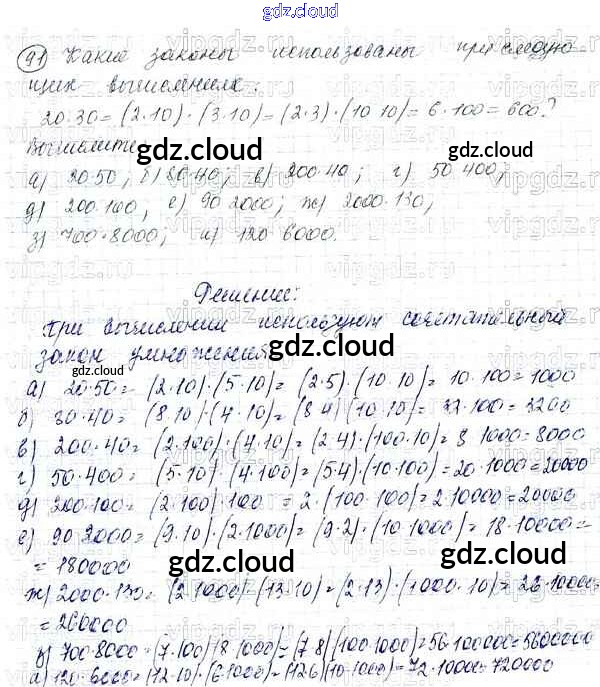 gdz.cloud
91) Какие законы использованы при следую-
щих вычислениях:
20·30=(2·10)·(3·10)=(2·3)·(10·10)=6·100=600?
Вычислите:
а) 20·50; б) 80·40; в) 200·40; г) 50·400;
д) 200·100; е) 90·2000; ж) 2000·130;
з) 700·8000; и) 120·6000.
Решение:
При вычислении используют сочетательный
закон умножения.
а) 20·50=(2·10)·(5·10)=(2·5)·(10·10)=10·100=1000
б) 80·40=(8·10)·(4·10)=(8·4)(10·10)=32·100=3200
в) 200·40=(2·100)·(4·10)=(2·4)·(100·10)=8·1000=8000
г) 50·400=(5·10)·(4·100)=(5·4)·(10·100)=20·1000=20000
д) 200·100=(2·100)·100=2·(100·100)=2·10000=20000
е) 90·2000=(9·10)·(2·1000)=(9·2)·(10·1000)=18·10000=
=180000
ж) 2000·130=(2·1000)·(13·10)=(2·13)·(1000·10)=26·10000=
=260000
з) 700·8000=(7·100)(8·1000)=(7·8)(100·1000)=56·100000=5600000
и) 120·6000=(12·10)·(6·1000)=(12·6)(10·1000)=72·10000=720000
gdz.cloud
gdz.cloud
gdz.cloud
gdz.cloud
gdz.cloud
gdz.cloud
gdz.cloud